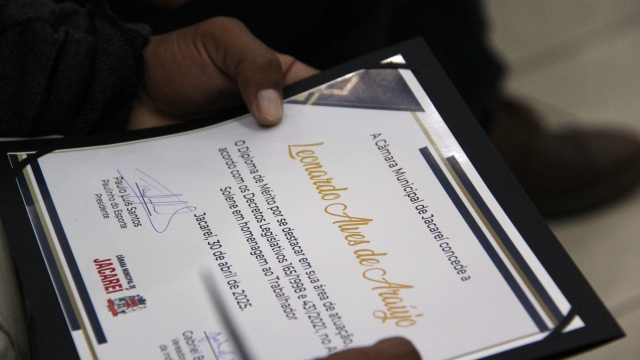 A Câmara Municipal de Jacareí concede a
Leonardo Alves de Araújo
O Diploma de Mérito por se destacar em sua área de atuação,
acordo com os Decretos Legislativos 165/1998 e 431/2021, no A
Solene em homenagem ao Trabalhador
Jacareí, 30 de abril de 2025.
Paulo Luís Santos
Paulinho do Esporte
Presidente
Gabriel B
CÂMARA MUNICIPAL DE
JACAREÍ